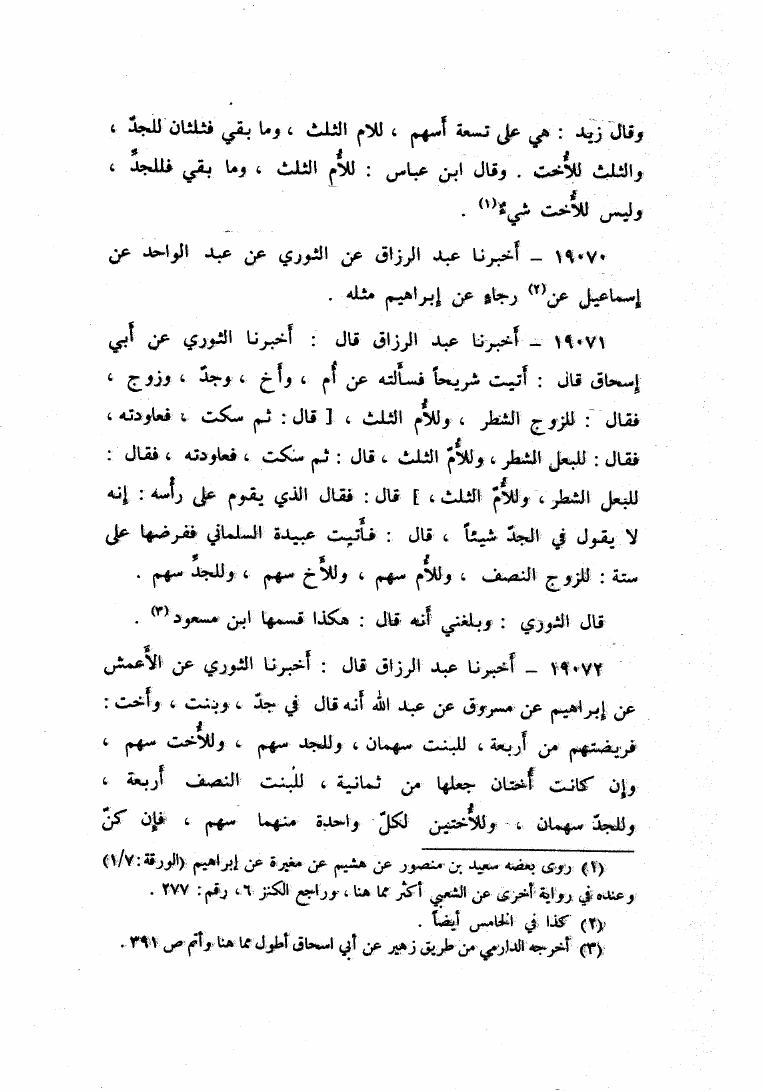 وقال زيد : هي على تسعة أسهم ، للام الثلث ، وما بقي فثلثان للجدّ ،
والثلث للأُخت . وقال ابن عباس : للأُم الثلث ، وما بقي فللجدِّ ،
وليس للأُخت شيءٌ(١) .
١٩٠٧٠ – أخبرنا عبد الرزاق عن الثوري عن عبد الواحد عن
إسماعيل عن(٢) رجاءٍ عن إبراهيم مثله .
١٩٠٧١ – أخبرنا عبد الرزاق قال : أخبرنا الثوري عن أبي
إسحاق قال : أتيت شريحاً فسألته عن أُم ، وأخ ، وجدّ ، وزوج ،
فقال : للزوج الشطر ، وللأُم الثلث ، [ قال : ثم سكت ، فعاودته ،
فقال : للبعل الشطر ، وللأُمّ الثلث ، قال : ثم سكت ، فعاودته ، فقال :
للبعل الشطر ، وللأُمّ الثلث ، ] قال : فقال الذي يقوم على رأسه : إنه
لا يقول في الجدّ شيئاً ، قال : فأتيت عبيدة السلماني ففرضها على
ستة : للزوج النصف ، وللأُم سهم ، وللأخ سهم ، وللجدِّ سهم .
قال الثوري : وبلغني أنه قال : هكذا قسمها ابن مسعود(٣) .
١٩٠٧٢ – أخبرنا عبد الرزاق قال : أخبرنا الثوري عن الأعمش
عن إبراهيم عن مسروق عن عبد الله أنه قال في جدّ ، وبنت ، وأُخت :
فريضتهم من أربعة ، للبنت سهمان ، وللجد سهم ، وللأُخت سهم ،
وإن كانت أُختان جعلها من ثمانية ، للبنت النصف أربعة ،
وللجدّ سهمان ، وللأُختين لكلّ واحدة منهما سهم ، فإن كنّ
(١) روى بعضه سعيد بن منصور عن هشيم عن مغيرة عن إبراهيم (الورقة : ١/٧)
وعنده في رواية أخرى عن الشعبي أكثر مما هنا ، وراجع الكنز ٦ ، رقم : ٢٧٧ .
(٢) كذا في الخامس أيضاً .
(٣) أخرجه الدارمي من طريق زهير عن أبي اسحاق أطول مما هنا وأتم ص ٣٩١ .